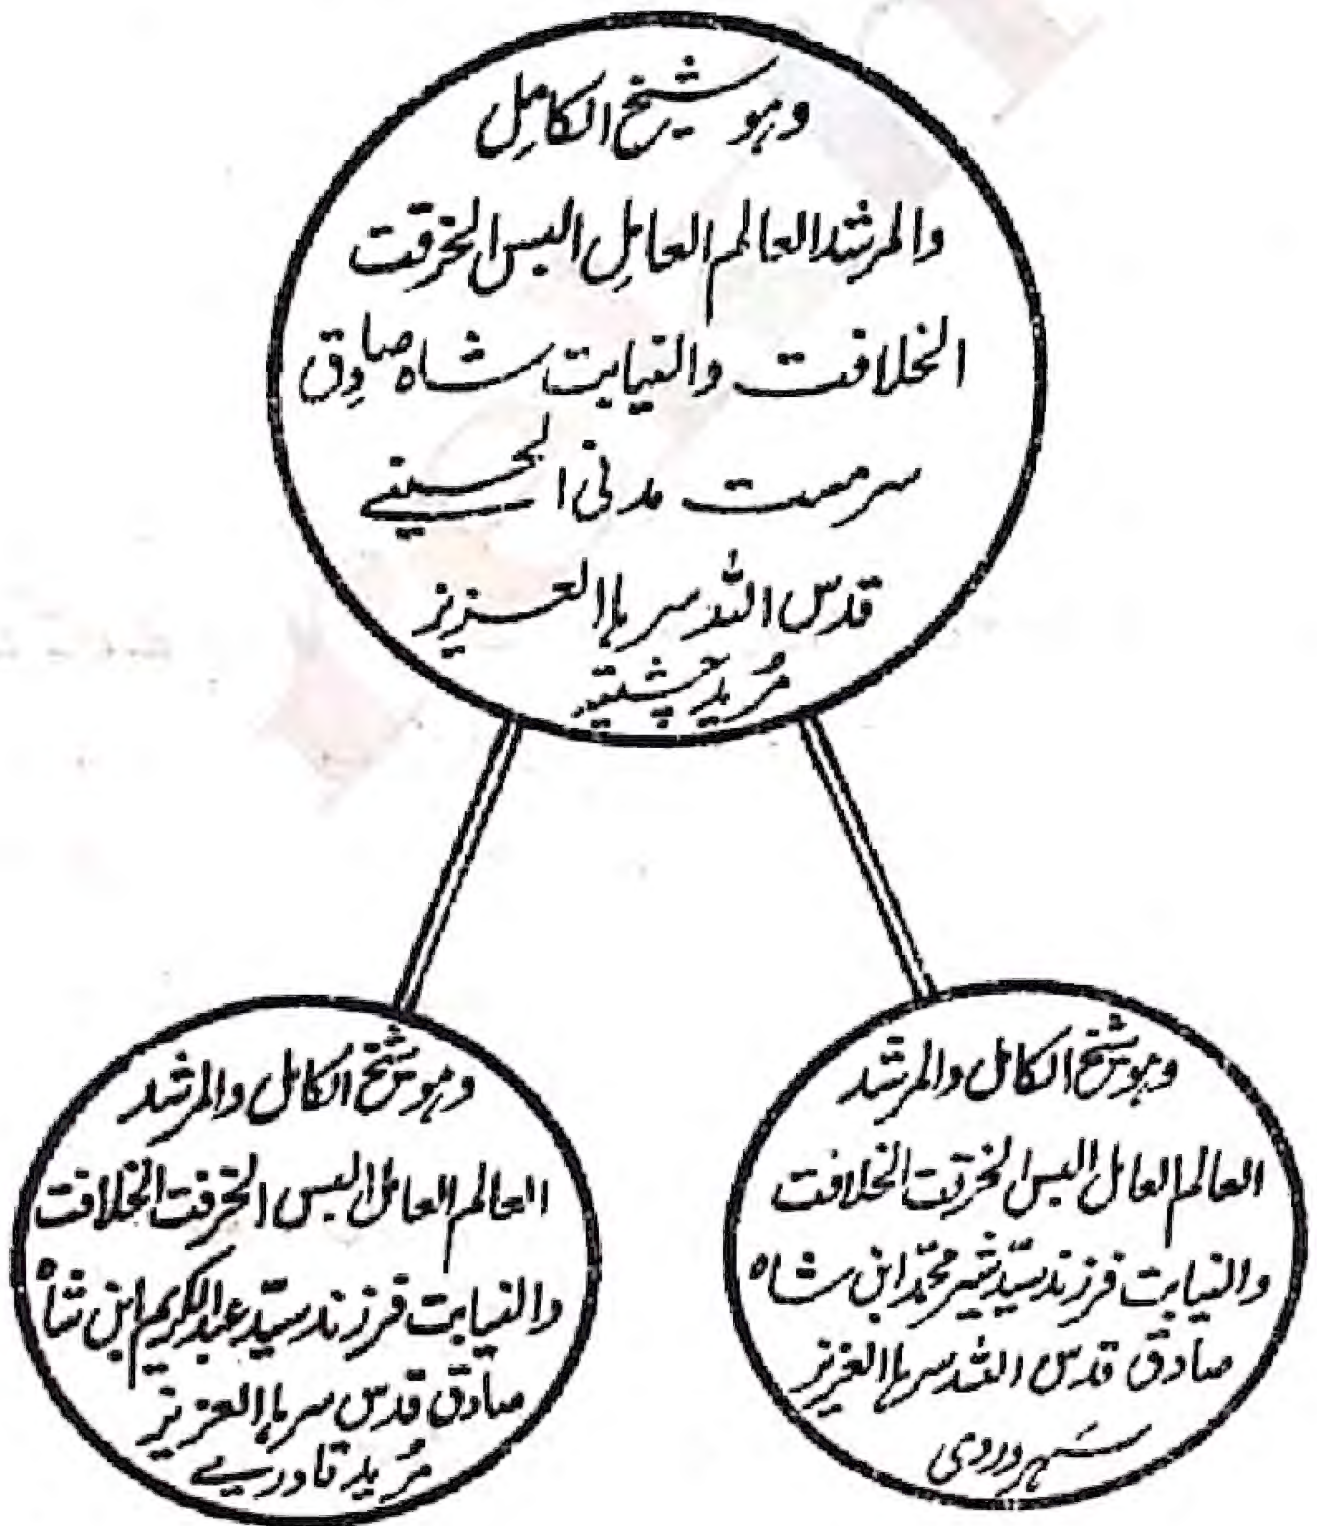 وہو شیخ الکامِل
والمرشد العالم العامِل البس الخرقت
الخلافت والنیابت شاہ صادِق
سرمست مدنی الحسینے
قدس اللہ سرہا العزیز
مُرید چشتیہ
وہو شیخ الکامل والمرشد
العالم العامل البس الخرقت الخلافت
والنیابت فرزند سیّد شیر محمّد ابن شاہ
صادق قدس اللہ سرہا العزیز
سَہروردی
وہو شیخ الکامل والمرشد
العالم العامل البس الخرقت الخلافت
والنیابت فرزند سیّد عبدالکریم ابن شاہ
صادق قدس سرہا العزیز
مُرید قادریے